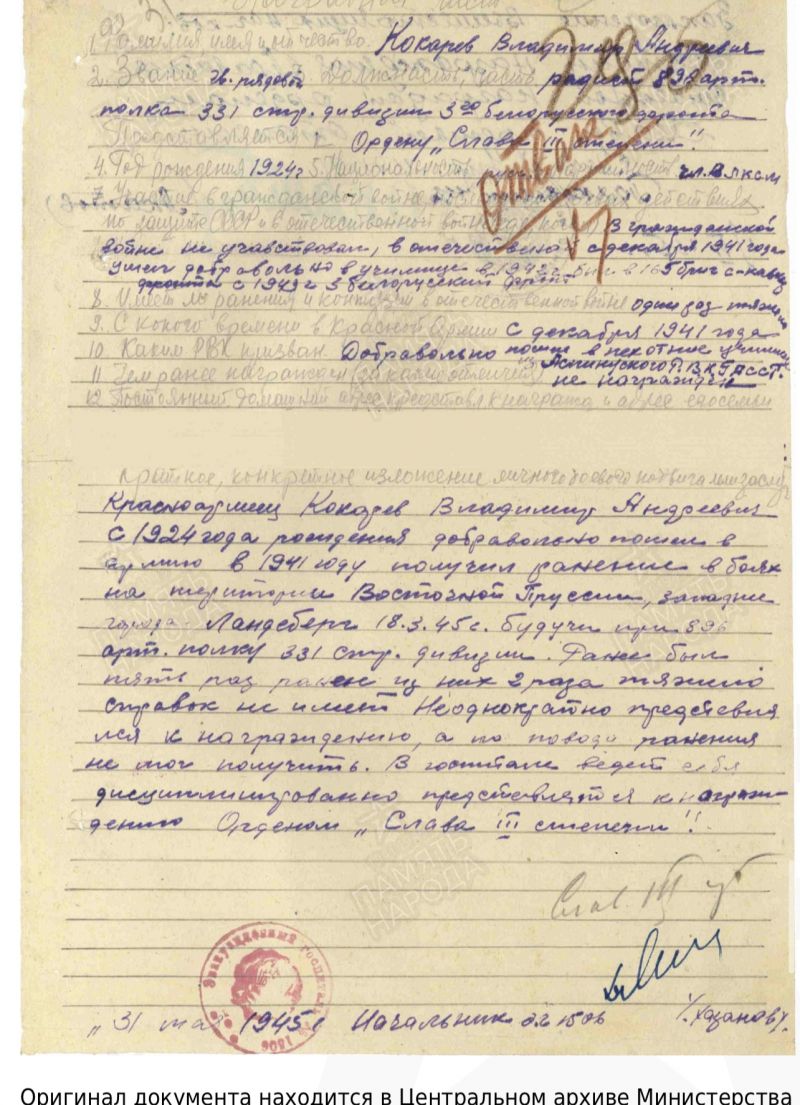 1. Фамилия, имя и отчество Кокарев Владимир Андреевич
2. Звание гв. рядовой 3. Должность, часть радист 896 арт.
полка 331 стр. дивизии 3го белорусского фронта
Представляется к Ордену „Слава III степени"!
4. Год рождения 1924 г 5. Национальность чл. ВЛКСМ
отвага
17
7. Участие в гражданской войне действиях
по защите СССР и в отечественной войне В гражданской
войне не учавствовал, в отечественной с декабря 1941 года
ушел добравольно в училище в 1942 г.
фронта с 1943 г 3 белорусский фронт
8. Имеет ли ранения и контузии в отечественной войне один раз тяжело
9. С какого времени в Красной Армии С декабря 1941 года
10 Каким РВК призван Добравольно пошел в пехотное училище
11 Чем ранее награжден (за какие отличия) не награжден
12 Постоянный домашний адрес представл. к награжд. и адрес его семьи
Краткое, конкретное изложение личного боевого подвига или заслуг
Красноармеец Кокарев Владимир Андреевич
с 1924 года рождения добравольно пошел в
армию в 1941 году получил ранение в боях
на територии Восточной Пруссии, западнее
города Ландсберг 18.3.45 г. будучи при 896
арт. полку 331 стр. дивизии. Ранее был
пять раз ранен из них 2 раза тяжело
справок не имеет Неоднократно представля
лся к награждению, а по поводу ранения
не мог получить. В госпитале ведет себя
дисциплинированно представляется к награж-
дению Орденом „Слава III степени"!
Слав. III
Эвакуационный госпиталь № 1506
„31 мая 1945 г Начальник эг 1506 /Хазанов/.
ПАМЯТЬ
НАРОДА
Оригинал документа находится в Центральном архиве Министерства